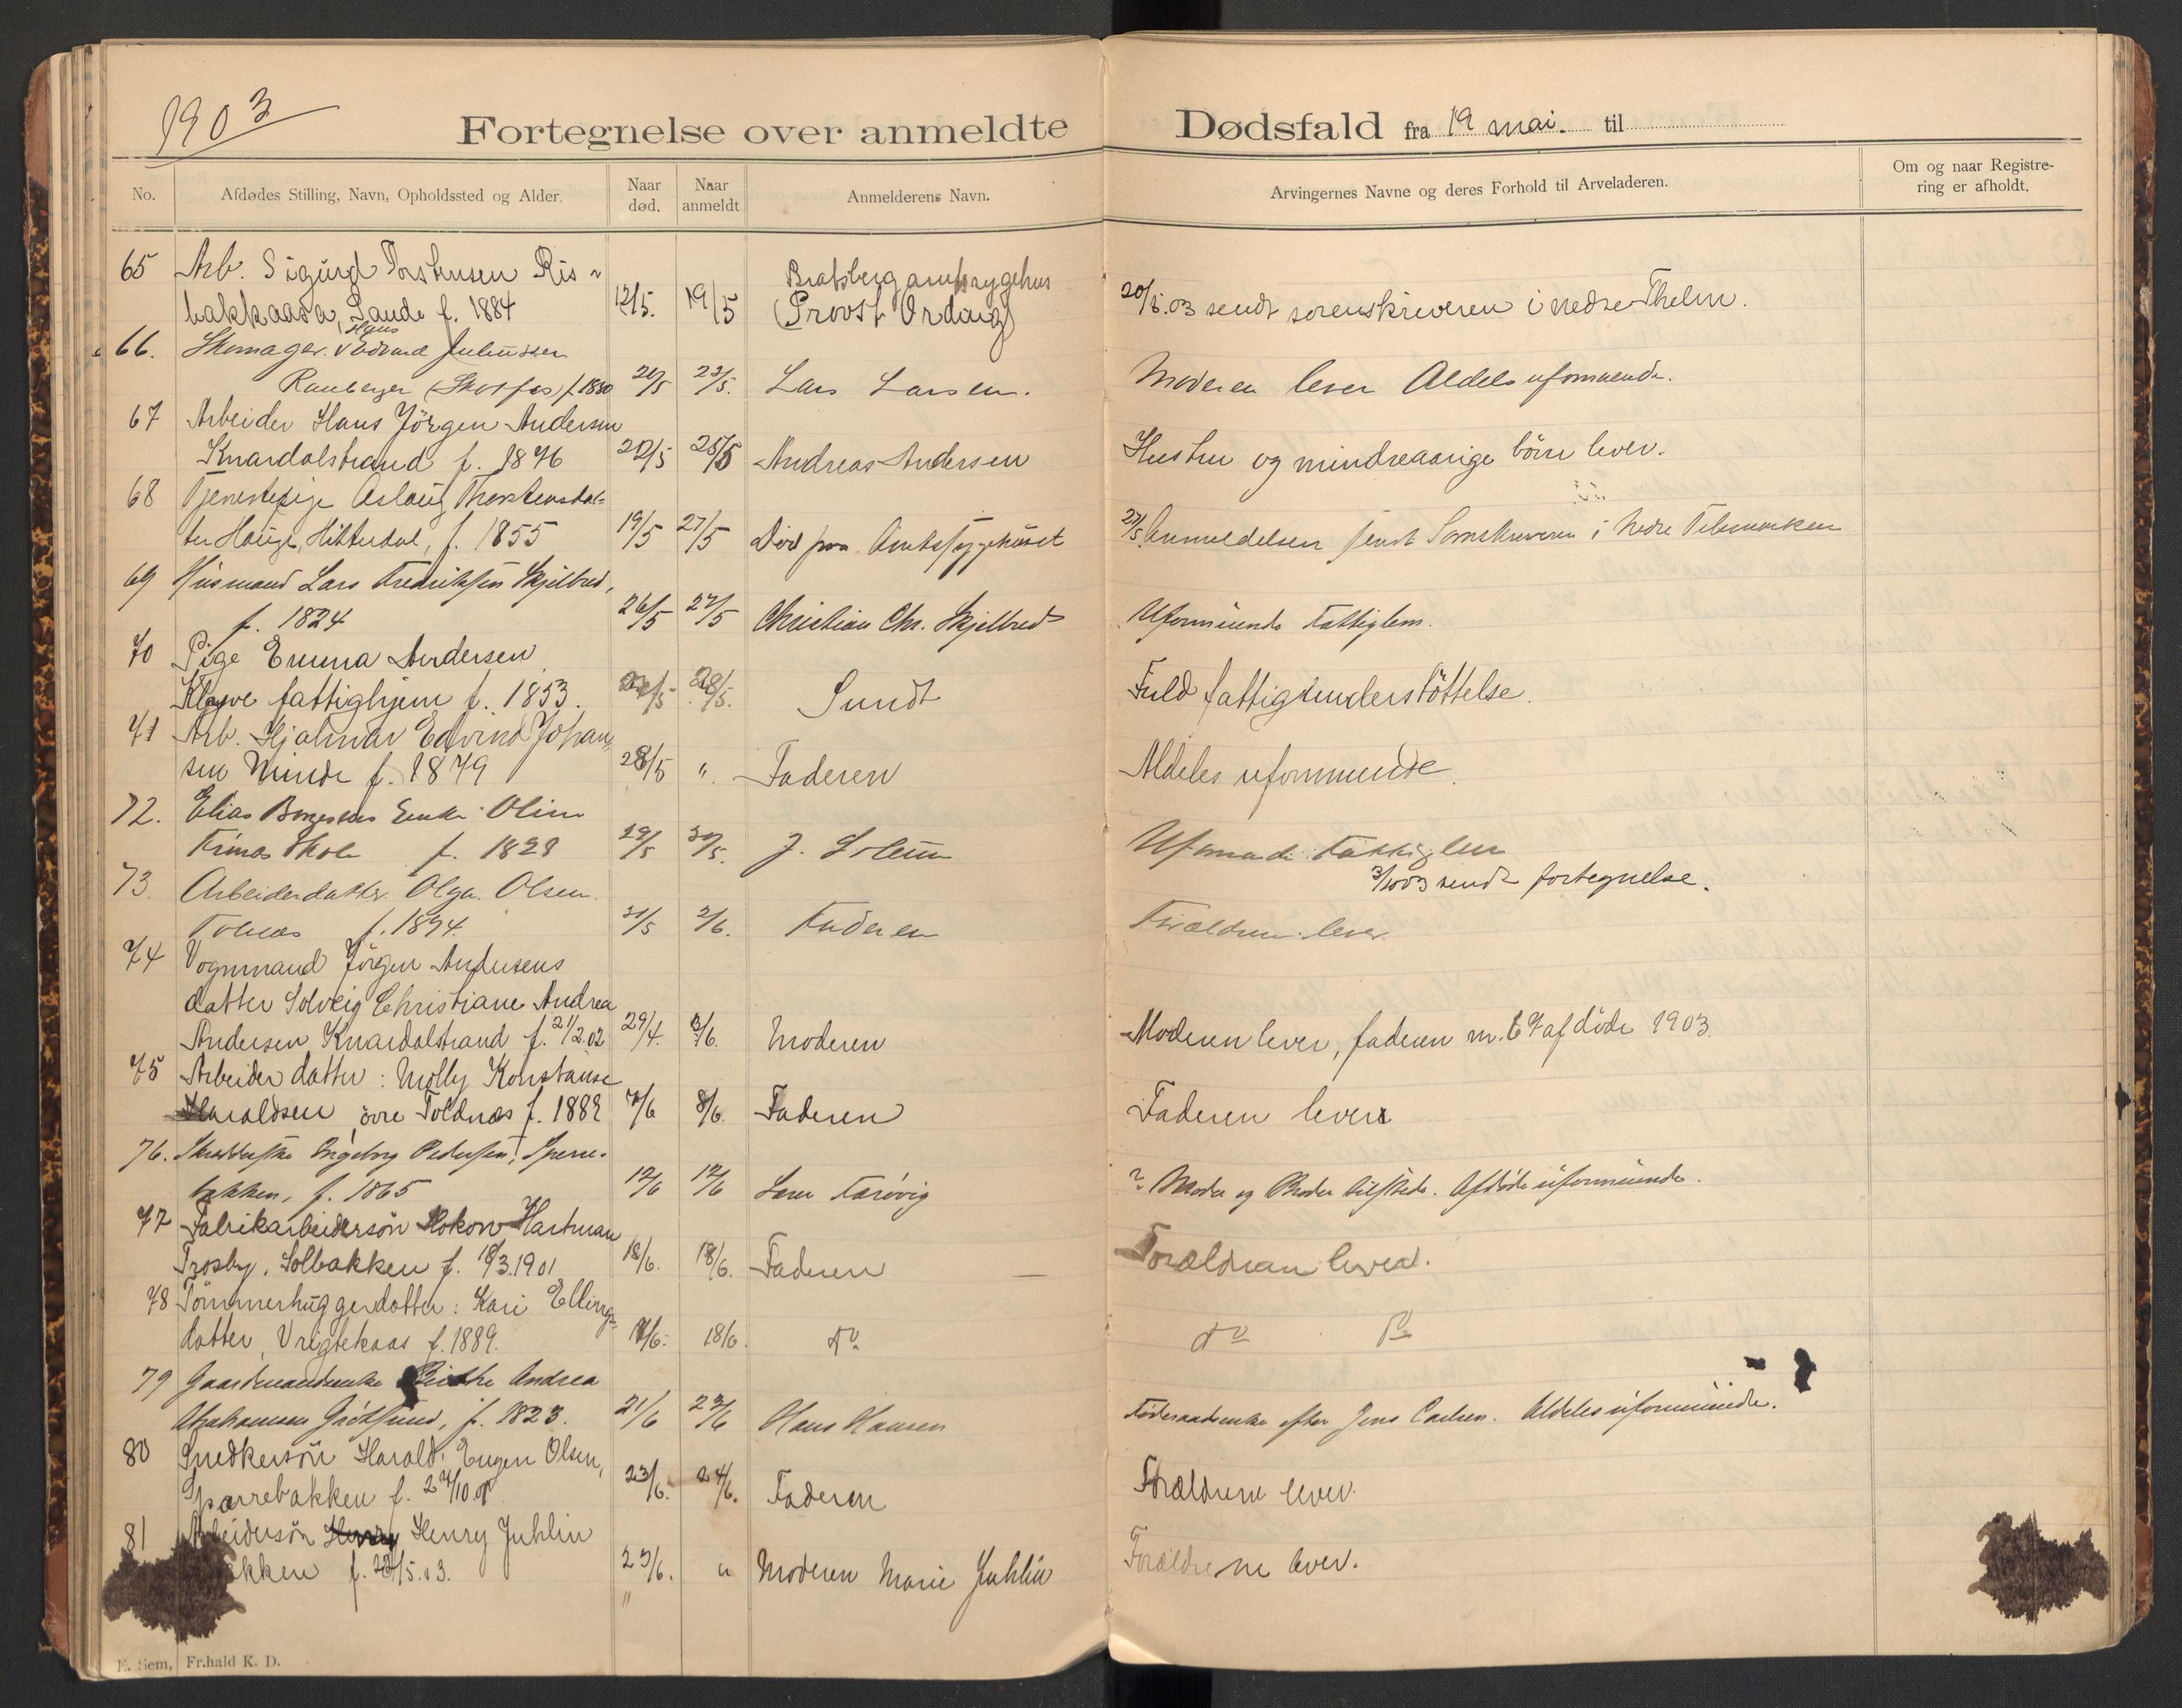 1903
Fortegnelse over anmeldte Dødsfald fra 19 mai. til
No. Afdødes Stilling, Navn, Opholdssted og Alder. Naar død. Naar anmeldt Anmelderens Navn. Arvingernes Navne og deres Forhold til Arveladeren. Om og naar Registrering er afholdt.
65 Arb. Sigurd Torstensen Ris- Bratsberg amtssygehus
bakkaasa, Saude f. 1884 12/5. 19/5 (Provst Ording) 20/5.03 sendt sorenskriveren i nedre Thelm.
66. Skomager. Hans Edvard Juliussen
(Skotfos) f. 1880 20/5 23/5. Lars Larsen. Moderen lever Aldels uformuende.
67 Arbeider Hans Jörgen Andersen
Knardalstrand f. 1876 22/5 25/5 Andreas Andersen Hustru og mindreaarige börn lever.
68 Tjenestepige Aslaug Thorstensdat-
ter Hauge, Hitterdal, f. 1855 19/5 27/5 Död paa Amtssygehuset 27/5 Anmeldelsen sendt Sorenskriveren i Nedre Telemarken
69 Husmand Lars Fredriksen Skjelbred,
f. 1824 26/5 27/5 Christian Chr. Skjelbred Uformuende Fattiglem.
70 Pige Emma Andersen
Kleve fattighjem f. 1853. 28/5. Sundt Fuld fattigunderstöttelse.
71 Arb. Hjalmar Edvind Johan-
sen Minde f. 1879 28/5 ". Faderen Aldeles uformuende.
72. Elias Enke Oline
f. 1828 29/5 30/5. J. Solum Uformuende Fattiglem
3/10 03 sendt fortegnelse.
73. Arbeiderdatter Olga Olsen
Tolnæs f. 1894. 31/5 2/6. Faderen Forældrene lever.
74 Vognmand Jörgen Andersens
datter Solveig Christiane Andrea
Andersen Knardalstrand f. 21/2.02 29/4. 3/6. Moderen Moderen lever, faderen m. E. 7 af döde 1903.
75 Arbeiderdatter: Molly Konstanse
Haraldsen, övre Toldnæs f. 1889 7/6 8/6. Faderen Faderen lever
76. Ingeborg Pedersen, Sperre-
bakken, f. 1865 12/6 12/6 Moder og Broder tilstede. Afdöde uformuende.
77 Fabrikarbeidersön Hokon Hartman
Trosby, Solbakken f. 18/3.1901 18/6. 18/6. Faderen — Forældrene lever.
78 Tömmerhuggerdatter: Kari Ellings-
datter, Vrigtekaas f. 1889. 18/6. do do do
79 Gaardmandsenke Birthe Andrea
Abrahamsen Grötsund, f. 1823. 21/6 23/6 Hans Hansen Föderaadsenke efter Jens Carlsen. Aldeles uformuende.
80 Snedkersön Harald Eugen Olsen,
Sparrebakken f. 27/10.01 23/6. 24/6. Faderen Forældrene lever.
81 Arbeidersön Henry Henry Juhlin
kken f. 23/5.03. 23/6. " Moderen Marie Juhlin Forældrene lever.
"
E. Sem, Fr.hald K. D.